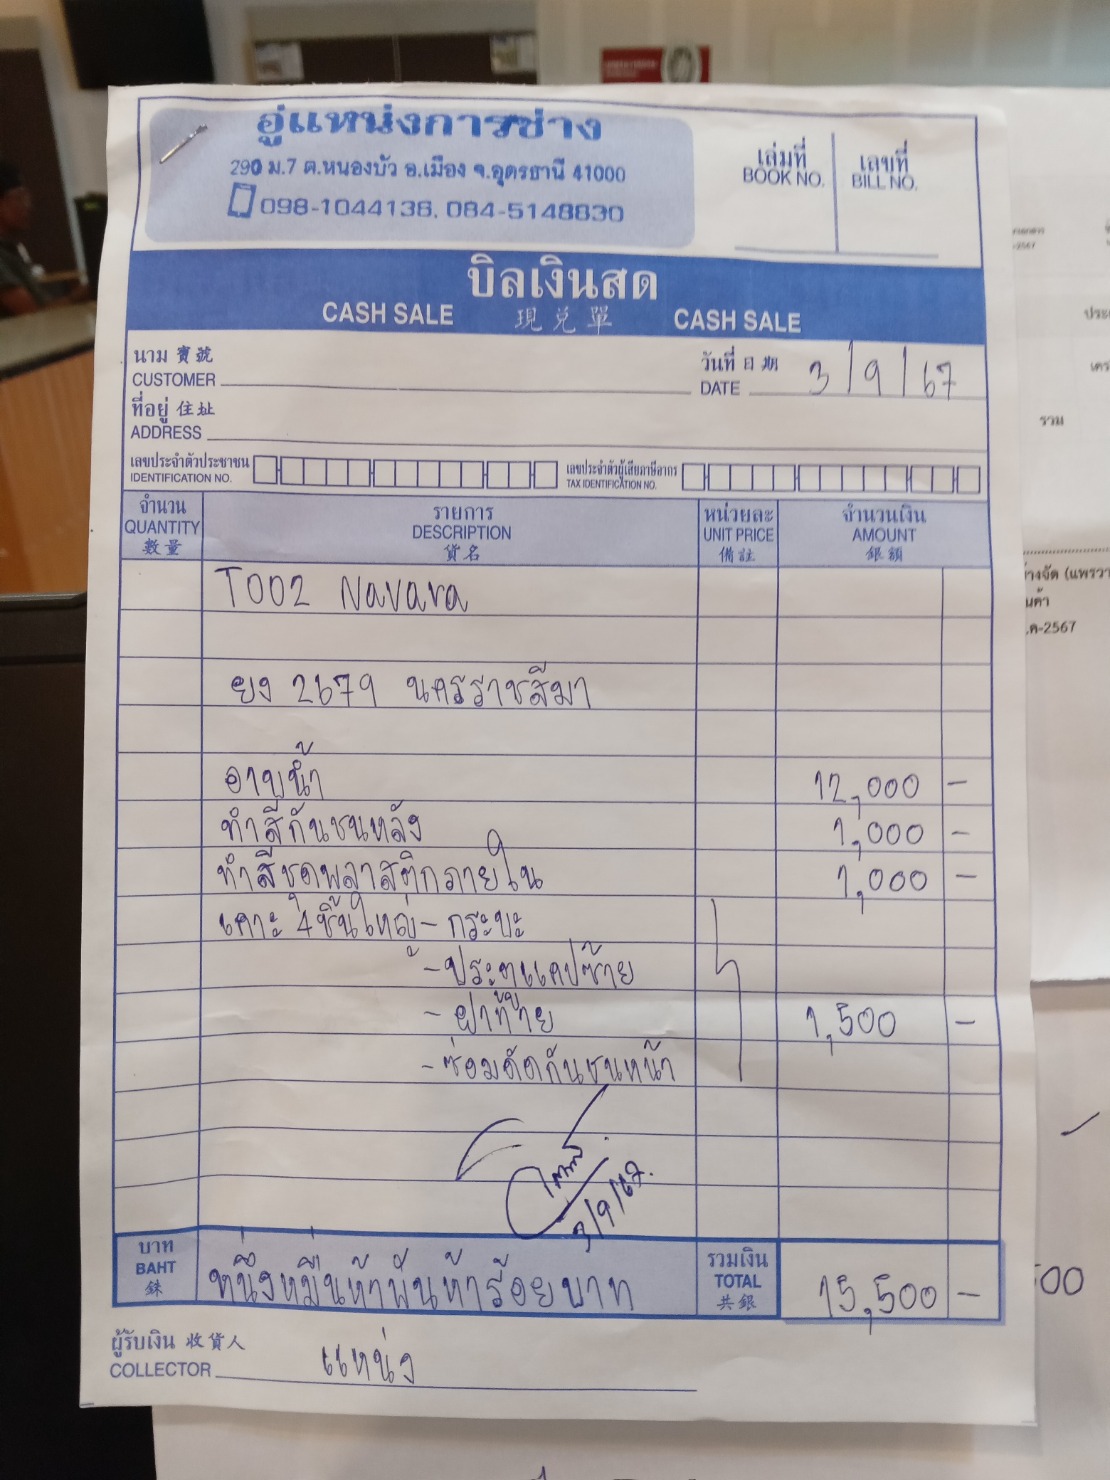 อู่แหน่งการช่าง
290 ม.7 ต.หนองบัว อ.เมือง จ.อุดรธานี 41000
098-1044136, 084-5148830
เล่มที่
BOOK NO.
เลขที่
BILL NO.
บิลเงินสด
CASH SALE 現兌單 CASH SALE
นาม 寶號
CUSTOMER
วันที่ 日期
DATE 3/9/67
ที่อยู่ 住址
ADDRESS
เลขประจำตัวประชาชน
IDENTIFICATION NO.
เลขประจำตัวผู้เสียภาษีอากร
TAX IDENTIFICATION NO.
จำนวน
QUANTITY
數量
รายการ
DESCRIPTION
貨名
หน่วยละ
UNIT PRICE
備註
จำนวนเงิน
AMOUNT
銀額
T002 Navara
ยง 2679 นครราชสีมา
อาบน้ำ 12,000 -
ทำสีกันชนหลัง 1,000 -
ทำสีชุดพลาสติกภายใน 1,000 -
เคาะ 4 ชิ้นใหญ่ - กระบะ
- ประตูแคปซ้าย
- ฝาท้าย 1,500 -
- ซ่อมดัดกันชนหน้า
3/9/67.
บาท
BAHT
銖
หนึ่งหมื่นห้าพันห้าร้อยบาท
รวมเงิน
TOTAL
共銀
15,500 -
ผู้รับเงิน 收貨人
COLLECTOR แหน่ง
รวม